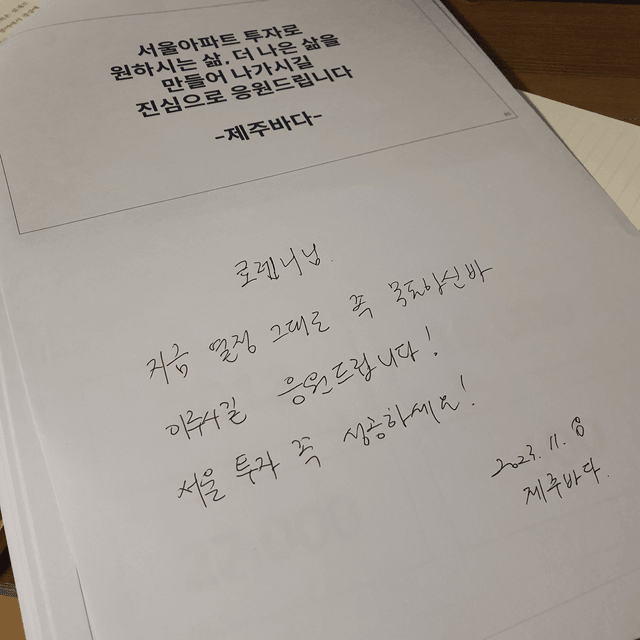 서울아파트 투자로
원하시는 삶, 더 나은 삶을
만들어 나가시길
진심으로 응원드립니다
-제주바다-
로렙니님.
지금 열정 그대로 꼭 목표하신바
이루시길 응원드립니다!
서울 투자 꼭 성공하세요!
2023. 11.
제주바다.